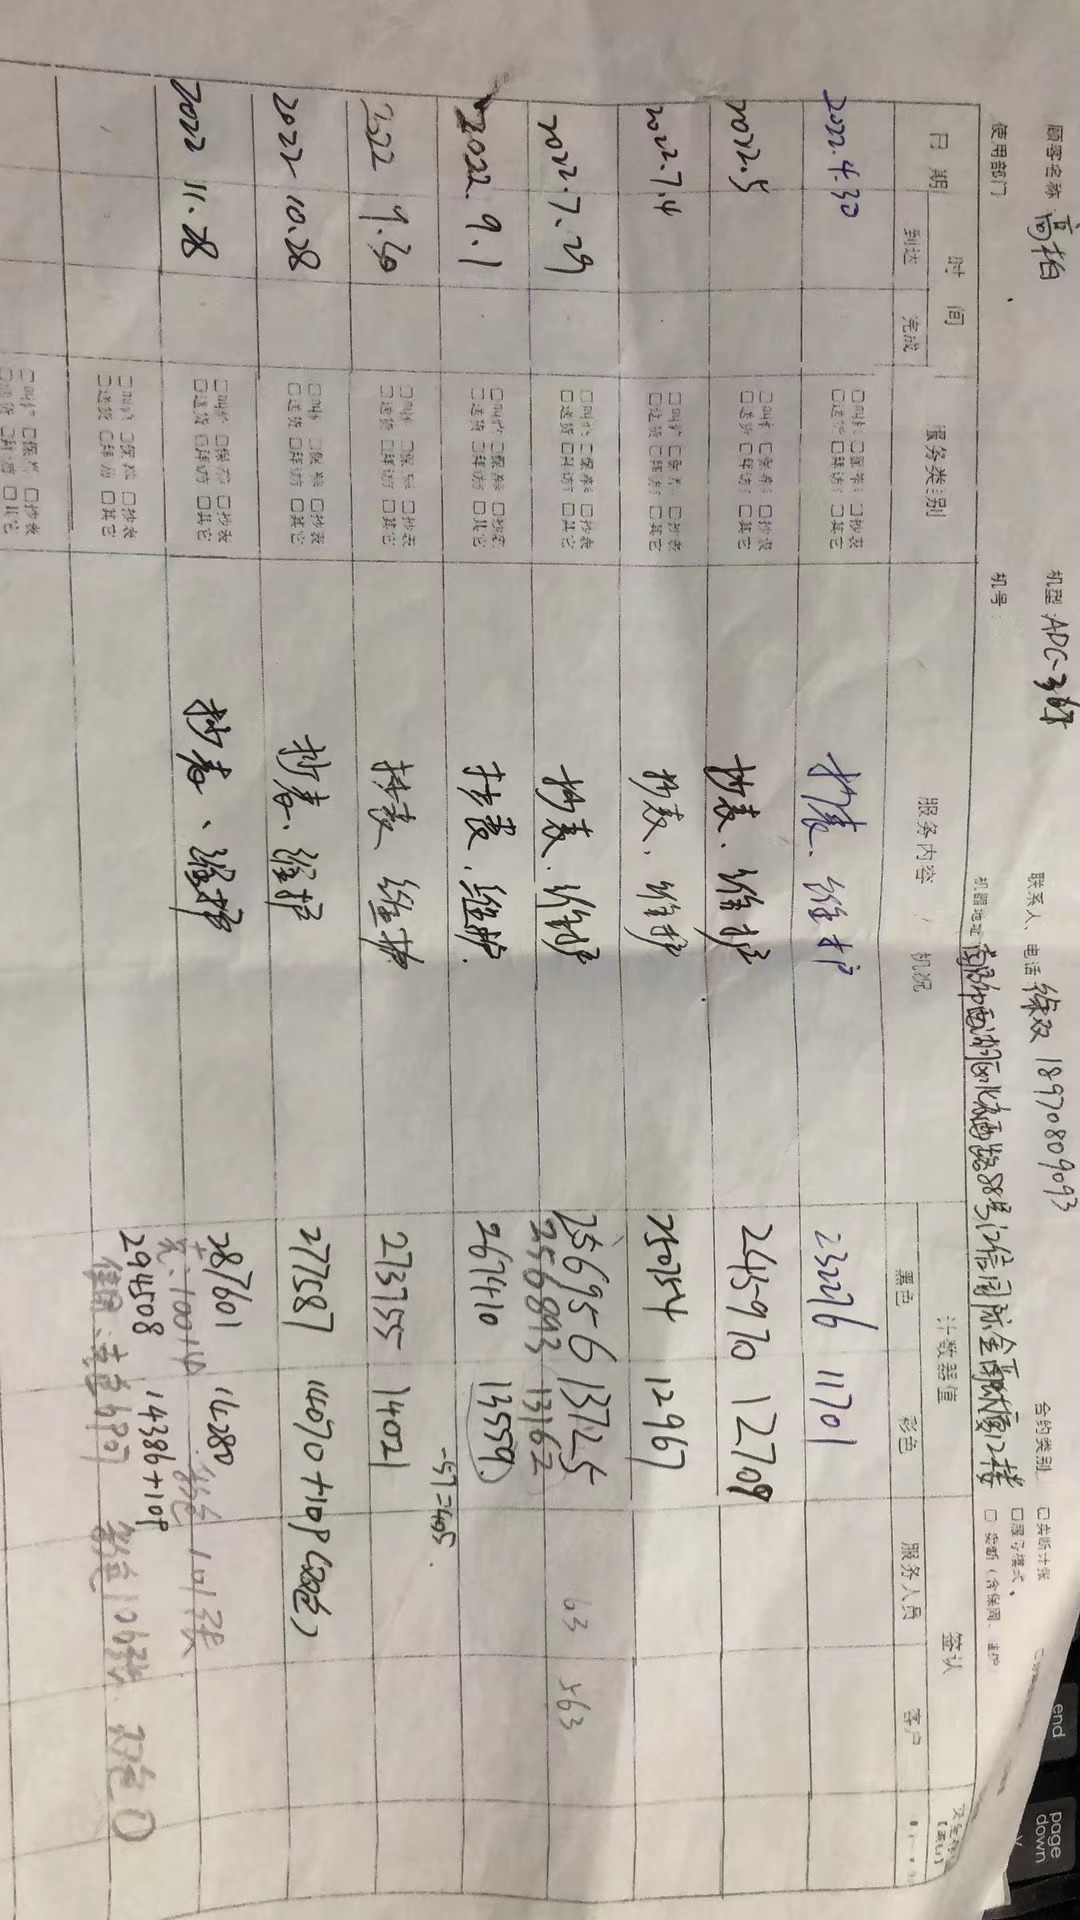 顾客名称 高柏 机型 ADC-365 联系人、电话 徐双 18970809093 合约类别 □卖断计张
□服务模式
使用部门 机号: 机器地址 南昌市西湖区北京西路88号江信国际金融大厦12楼 □卖断(含保周、维护
日期 时间 服务类别 服务内容 / 机况 计数器值 签认
到达 完成 黑色 彩色 服务人员 客户
2022.4.30 □叫修 □保养 □抄表 □送货 □拜访 □其它 抄表、维护 232276 11701
2022.5 □叫修 □保养 □抄表 □送货 □拜访 □其它 抄表、维护 245970 12709
2022.7.4 □叫修 □保养 □抄表 □送货 □拜访 □其它 抄表、维护 252754 12967
2022.7.29 □叫修 □保养 □抄表 □送货 □拜访 □其它 抄表、维护 256956 13725 63 563
256893 13162
2022.9.1 □叫修 □保养 □抄表 □送货 □拜访 □其它 抄表、维护. 267410 13559
-57=405.
2022 9.30 □叫修 □保养 □抄表 □送货 □拜访 □其它 抄表、维护 273755 14021
2022 10.28 □叫修 □保养 □抄表 □送货 □拜访 □其它 抄表、维护 277587 14070+10P(双色)
2022 11.28 □叫修 □保养 □抄表 □送货 □拜访 □其它 抄表、维护 287601 14280
黑:10014 彩色 101张
□叫修 □保养 □抄表 □送货 □拜访 □其它 294508 14386+10P
黑色6907 彩色106张 双色0
□叫修 □保养 □抄表
□送货 □拜访 □其它
end
page
down